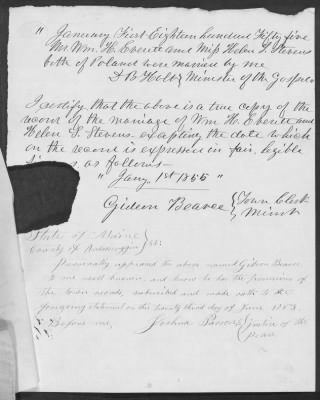 " January First Eighteen hundred Fifty five
Mr. Wm. H. Everett and Miss Helen L. Stevens
both of Poland were married by me
Minister of the Gospel
I certify that the above is a true copy of the
record of the marriage of Wm H. Everett and
Helen L. Stevens excepting the date which
on the record is expressed in fair, legible
as follows—
" Jany. 1st 1855 "
Gideon Bearce { Town Clerk
Minot
State of Maine
County of Androscoggin } SS.
Personally appeared the above named Gideon Bearce
to me well known, and know to be the
the town records, subscribed and made oath to the
foregoing statement on this twenty third day of June
Before me, Joshua Parsons { Justice of the
Peace